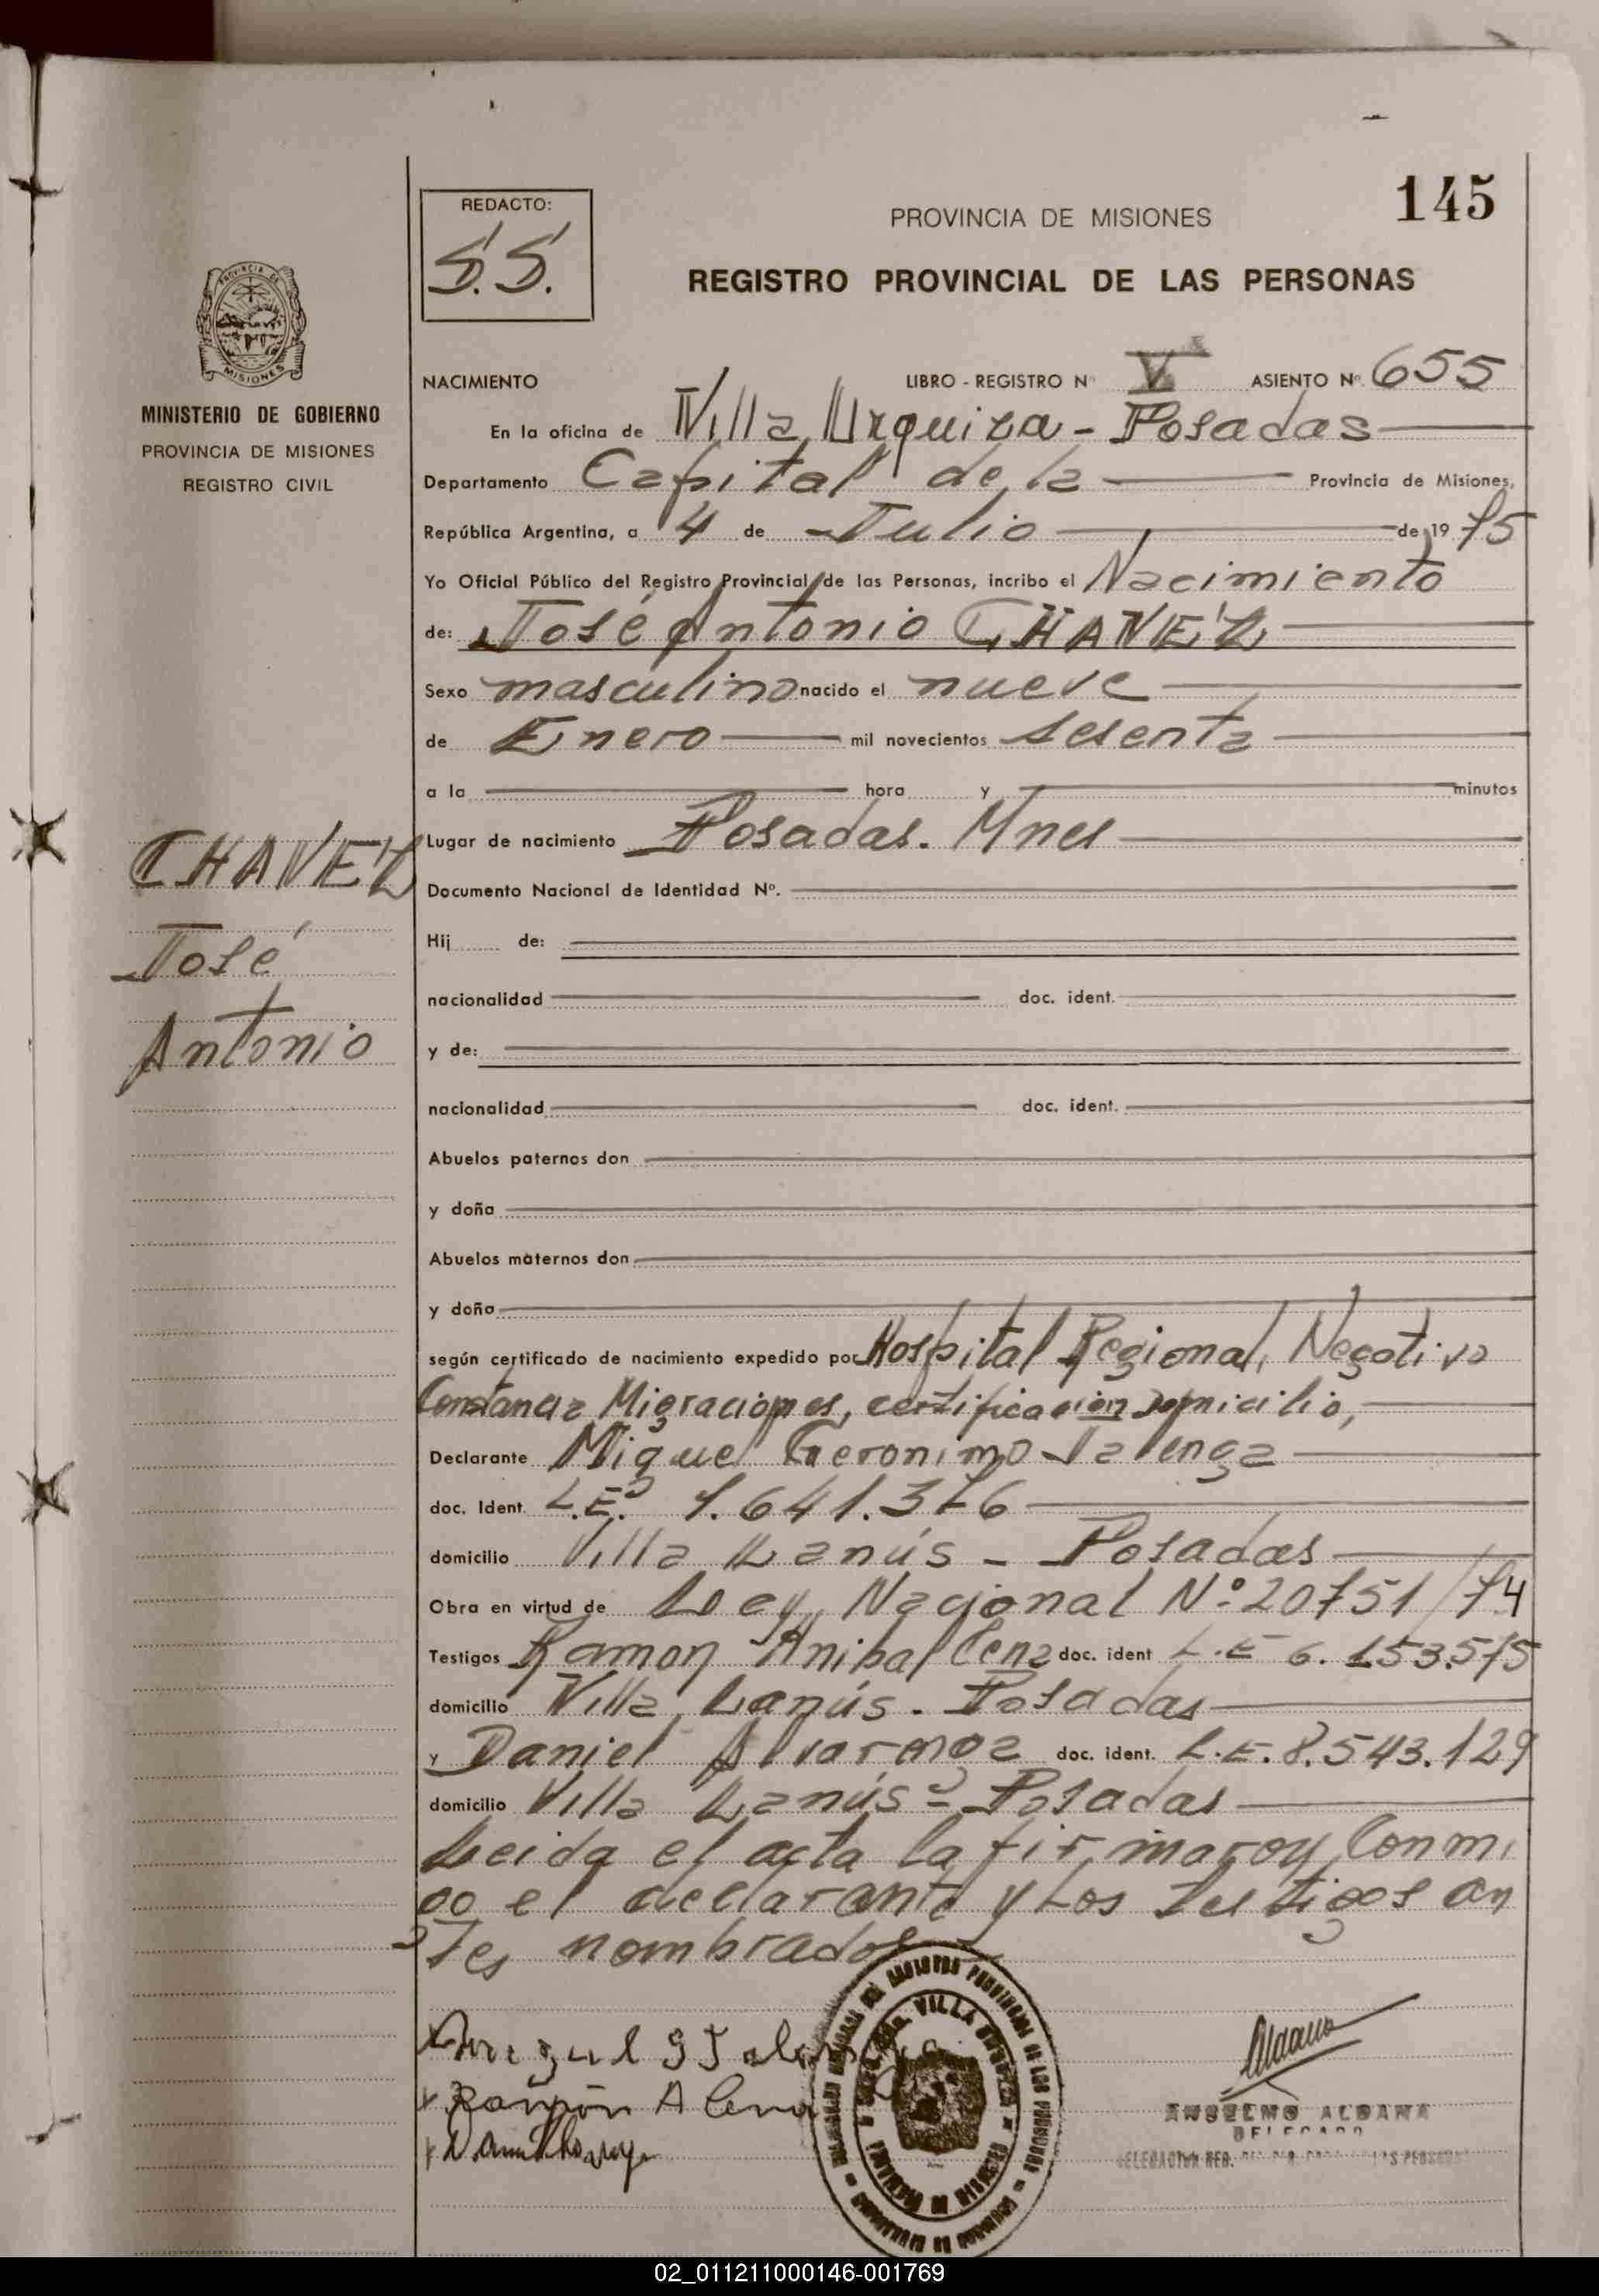 145
REDACTO:
S.S.
PROVINCIA DE MISIONES
REGISTRO PROVINCIAL DE LAS PERSONAS
PROVINCIA DE
MISIONES
MINISTERIO DE GOBIERNO
PROVINCIA DE MISIONES
REGISTRO CIVIL
NACIMIENTO LIBRO - REGISTRO Nº V ASIENTO Nº 655
En la oficina de Villa Urquiza - Posadas
Departamento Capital de la Provincia de Misiones,
República Argentina, a 4 de Julio de 19 75
Yo Oficial Público del Registro Provincial de las Personas, incribo el Nacimiento
de: José Antonio CHAVEZ
Sexo masculino nacido el nueve
de Enero mil novecientos sesenta
a la hora y minutos
Lugar de nacimiento Posadas. Mnes
CHAVEZ
José
Antonio
Documento Nacional de Identidad Nº.
Hij de:
nacionalidad doc. ident.
y de:
nacionalidad doc. ident.
Abuelos paternos don
y doña
Abuelos maternos don
y doña
según certificado de nacimiento expedido por Hospital Regional, Negativo
Constancia Migraciones, certificación domicilio,
Declarante Miguel Geronimo
doc. Ident. L.E. 1.641.376
domicilio Villa Lanús - Posadas
Obra en virtud de Ley Nacional Nº 20751/74
Testigos Ramon Anibal Cena doc. ident L.E 6.153.575
domicilio Villa Lanús. Posadas
y Daniel doc. ident. L.E. 8.543.129
domicilio Villa Lanús - Posadas
Leida el acta la firmaron Conmi
go el declarante y Los testigos an
tes nombrados
Ramón A Cena
Aldana
ANSELMO ALDANA
DELEGADO
VILLA URQUIZA
02_011211000146-001769